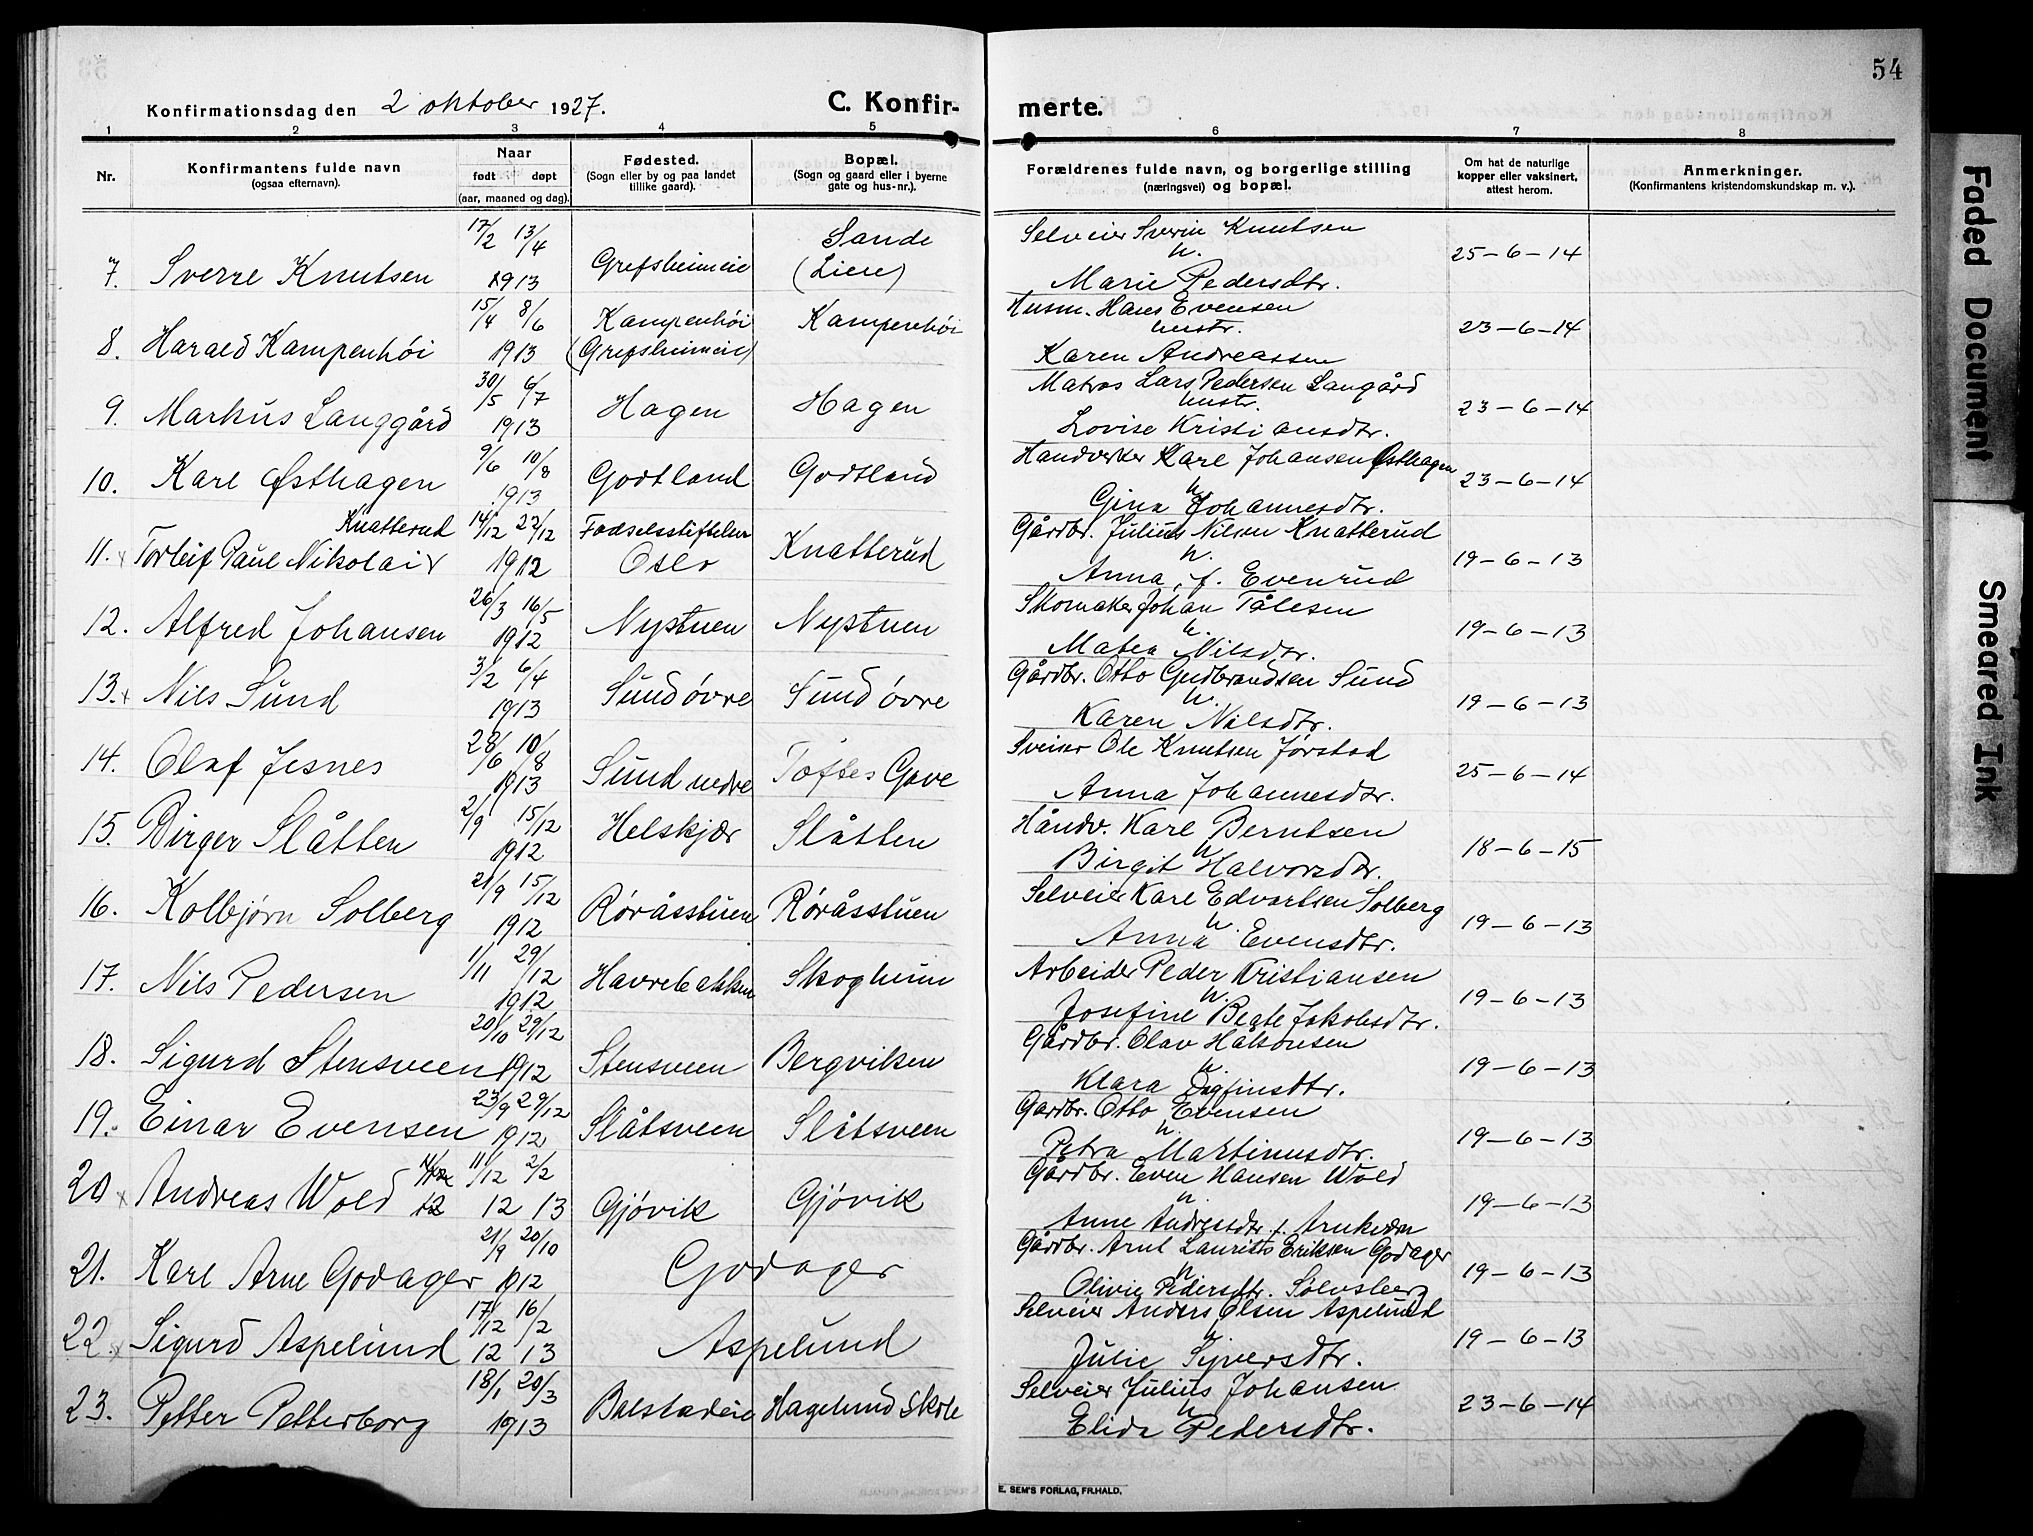 54
Konfirmationsdag den 2 oktober 1927.
C. Konfir-
merte.
1 2 3 4 5 6 7 8
Nr.
Konfirmantens fulde navn
(ogsaa efternavn).
Naar
født døpt
(aar, maaned og dag).
Fødested.
(Sogn eller by og paa landet
tillike gaard).
Bopæl.
(Sogn og gaard eller i byerne
gate og hus-nr.).
Forældrenes fulde navn, og borgerlige stilling
(næringsvei) og bopæl.
Om hat de naturlige
kopper eller vaksinert,
attest herom.
Anmerkninger.
(Konfirmantens kristendomskundskap m. v.).
17/2 13/4 Sande Selveier Sverin Knutsen
7. Sverre Knutsen 1913 Grefsheimeie (Liere) h. 25-6-14
Marie Pedersdtr.
15/4 8/6 Kampenhøi Kampenhøi Husm. Hans Evensen
8. Harald Kampenhøi 1913 (Grefsheimeie) hustr. 23-6-14
Karen Andreassen
30/5 6/7 Matros Lars Pedersen Langård
9. Markus Langgård 1913 Hagen Hagen hustr. 23-6-14
Lovise Kristiansdtr.
9/6 10/8 Handverker Karl Johansen Østhagen
10. Karl Østhagen 1913 Godtland Godtland h. 23-6-14
Gina Johannesdtr.
Knatterud 14/12 22/12 Fødselsstiftelsen Gårdbr. Julius Nilsen Knatterud
11. x Torleif Paul Nikolai v 1912 Oslo Knatterud h. 19-6-13
Anna, f. Evenrud
26/3 16/5 Skomaker Johan Tålesen
12. Alfred Johansen 1912 Nystuen Nystuen h. 19-6-13
Matea Nilsdtr.
3/2 6/4 Gårdbr. Otto Gudbrandsen Sund
13. x Nils Sund 1913 Sund øvre Sund øvre h. 19-6-13
Karen Nilsdtr.
28/6 10/8 Sveiser Ole Knutsen Jørstad
14. Olaf Jesnes 1913 Sund nedre Toftes Gave 25-6-14
Anna Johannesdtr.
2/9 15/12 Håndv. Karl Berntsen
15. Birger Slåtten 1912 Helskjær Slåtten h. 18-6-15
Birgit Halvorsdtr.
21/9 15/12 Selveier Karl Edvartsen Solberg
16. Kolbjørn Solberg 1912 Røråsstuen Røråsstuen h. 19-6-13
Anna Evensdtr.
1/11 29/12 Arbeider Peder Kristiansen
17. Nils Pedersen 1912 Havrebakken Skogheim h. 19-6-13
Josefine Beate Jakobsdtr.
20/10 29/12 Gårdbr. Olav Halvorsen
18. Sigurd Stensveen 1912 Stensveen Bergviken h. 19-6-13
Klara Dagfinsdtr.
23/9 29/12 Gardbr. Otto Evensen
19. Einar Evensen 1912 Slåtsveen Slåtsveen h. 19-6-13
Petra Martinusdtr.
11/12 2/2 Gårdbr. Even Hansen Wold
20 x Andreas Wold 12 12 13 Gjøvik Gjøvik h. 19-6-13
Anne Andreasdtr. f. Arnkværn
21/9 20/10 Gårdbr. Arnt Laurits Eriksen Godager
21. Karl Arne Godager 1912 Godager h 19-6-13
Olivie Pedersdtr. Sølvsberg
17/12 16/2 Selveier Anders Olsen Aspelund
22. x Sigurd Aspelund 12 13 Aspelund h 19-6-13
Julie Syversdtr.
18/1 20/3 Selveier Julius Johansen
23. Petter Petterborg 1913 Balstadeie Hagelund Skole h 23-6-14
Elida Pedersdtr.
E. SEM'S FORLAG, FR.HALD.
Faded Document
Smeared Ink